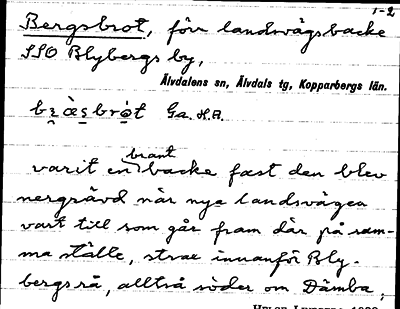 1-2
Bergsbrot, förr landsvägsbacke
SSO Blybergs by,
Älvdalens sn, Älvdals tg, Kopparbergs län.
Ga. H.A.
brant
varit en backe fast den blev
nergrävd när nya landsvägen
vart till som går fram där på sam-
ma ställe, strax innanför Bly-
bergsrå, alltså söder om Dämba,